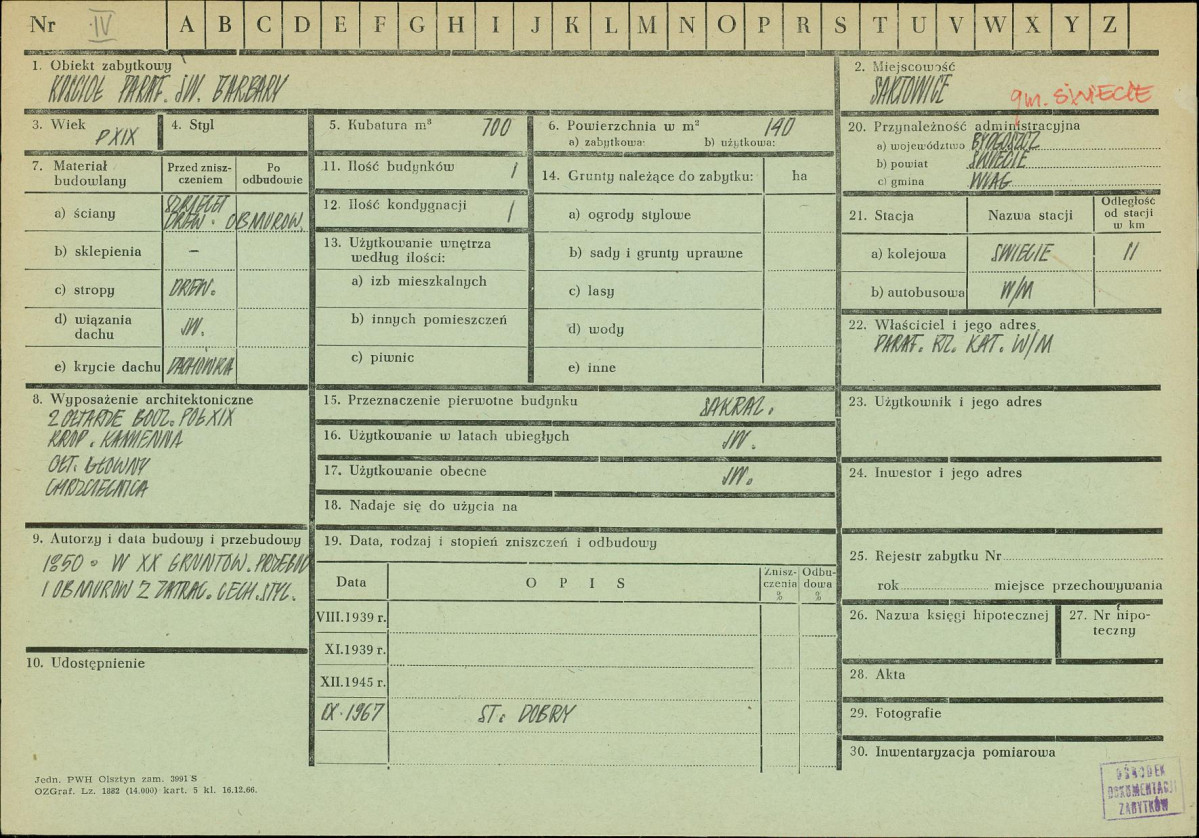 Nr IV A B C D E F G H I J K L M N O P R S T U V W X Y Z
1. Obiekt zabytkowy
KOŚCIÓŁ PARAF. ŚW. BARBARY
2. Miejscowość
SARTOWICE
gm. ŚWIECIE
3. Wiek
P XIX
4. Styl
5. Kubatura m³ 700
6. Powierzchnia w m² 140
a) zabytkowa: b) użytkowa:
7. Materiał budowlany
Przed znisz-
czeniem
Po
odbudowie
a) ściany
SZKIELET
DREW. OBMUROW.
b) sklepienia –
c) stropy DREW.
d) wiązania
dachu JW.
e) krycie dachu DACHÓWKA
8. Wyposażenie architektoniczne
2 OŁTARZE BOCZ. POŁ XIX
KROP. KAMIENNA
OŁT. GŁÓWNY
CHRZCIELNICA
9. Autorzy i data budowy i przebudowy
1850. W XX GRUNTOW. PRZEBUD
I OBMUROW Z ZATRAC. CECH. STYL.
10. Udostępnienie
11. Ilość budynków 1
12. Ilość kondygnacji 1
13. Użytkowanie wnętrza
według ilości:
a) izb mieszkalnych
b) innych pomieszczeń
c) piwnic
14. Grunty należące do zabytku: ha
a) ogrody stylowe
b) sady i grunty uprawne
c) lasy
d) wody
e) inne
15. Przeznaczenie pierwotne budynku SAKRAL.
16. Użytkowanie w latach ubiegłych JW.
17. Użytkowanie obecne JW.
18. Nadaje się do użycia na
19. Data, rodzaj i stopień zniszczeń i odbudowy
Data OPIS
Znisz-
czenia
%
Odbu-
dowa
%
VIII.1939 r.
XI.1939 r.
XII.1945 r.
IX.1967 ST. DOBRY
20. Przynależność administracyjna
a) województwo BYDGOSZCZ
b) powiat ŚWIECIE
c) gmina
21. Stacja Nazwa stacji
Odległość
od stacji
w km
a) kolejowa ŚWIECIE 11
b) autobusowa W/M
22. Właściciel i jego adres
PARAF. RZ. KAT. W/M
23. Użytkownik i jego adres
24. Inwestor i jego adres
25. Rejestr zabytku Nr
rok miejsce przechowywania
26. Nazwa księgi hipotecznej
27. Nr hipo-
teczny
28. Akta
29. Fotografie
30. Inwentaryzacja pomiarowa
Jedn. PWH Olsztyn zam. 3991 S
OZGraf. Lz. 1882 (14.000) kart. 5 kl. 16.12.66.
OŚRODEK
DOKUMENTACJI
ZABYTKÓW